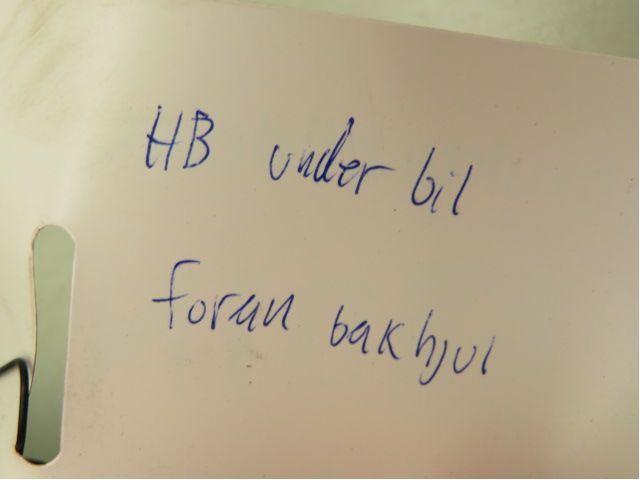 HB under bil
foran bakhjul